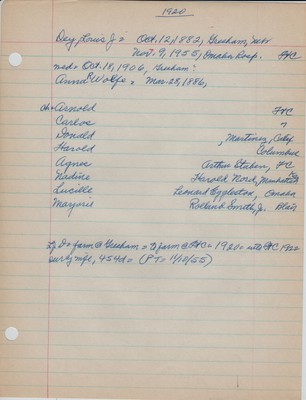 1920
Dey, Louis J = Oct. 12, 1882, Gresham, Nebr
Nov. 9, 1955, Hosp. FYC
md = Oct. 18, 1906, Gresham:
Anna Wolfe = Mar. 28, 1886,
ch = Arnold FYC
Carlos ?
Donald , Martinez, Calif
Harold Columbus
Agnes Arthur Staben, FC
Nadine Harold Nord,
Lucille Leonard Eggleston, Omaha
Marjorie Rolland Smith, Jr. Blair
D = farm @ Gresham = to farm @ FYC = 1920 = into FYC 1922
454 d = (PT = 11/10/55)